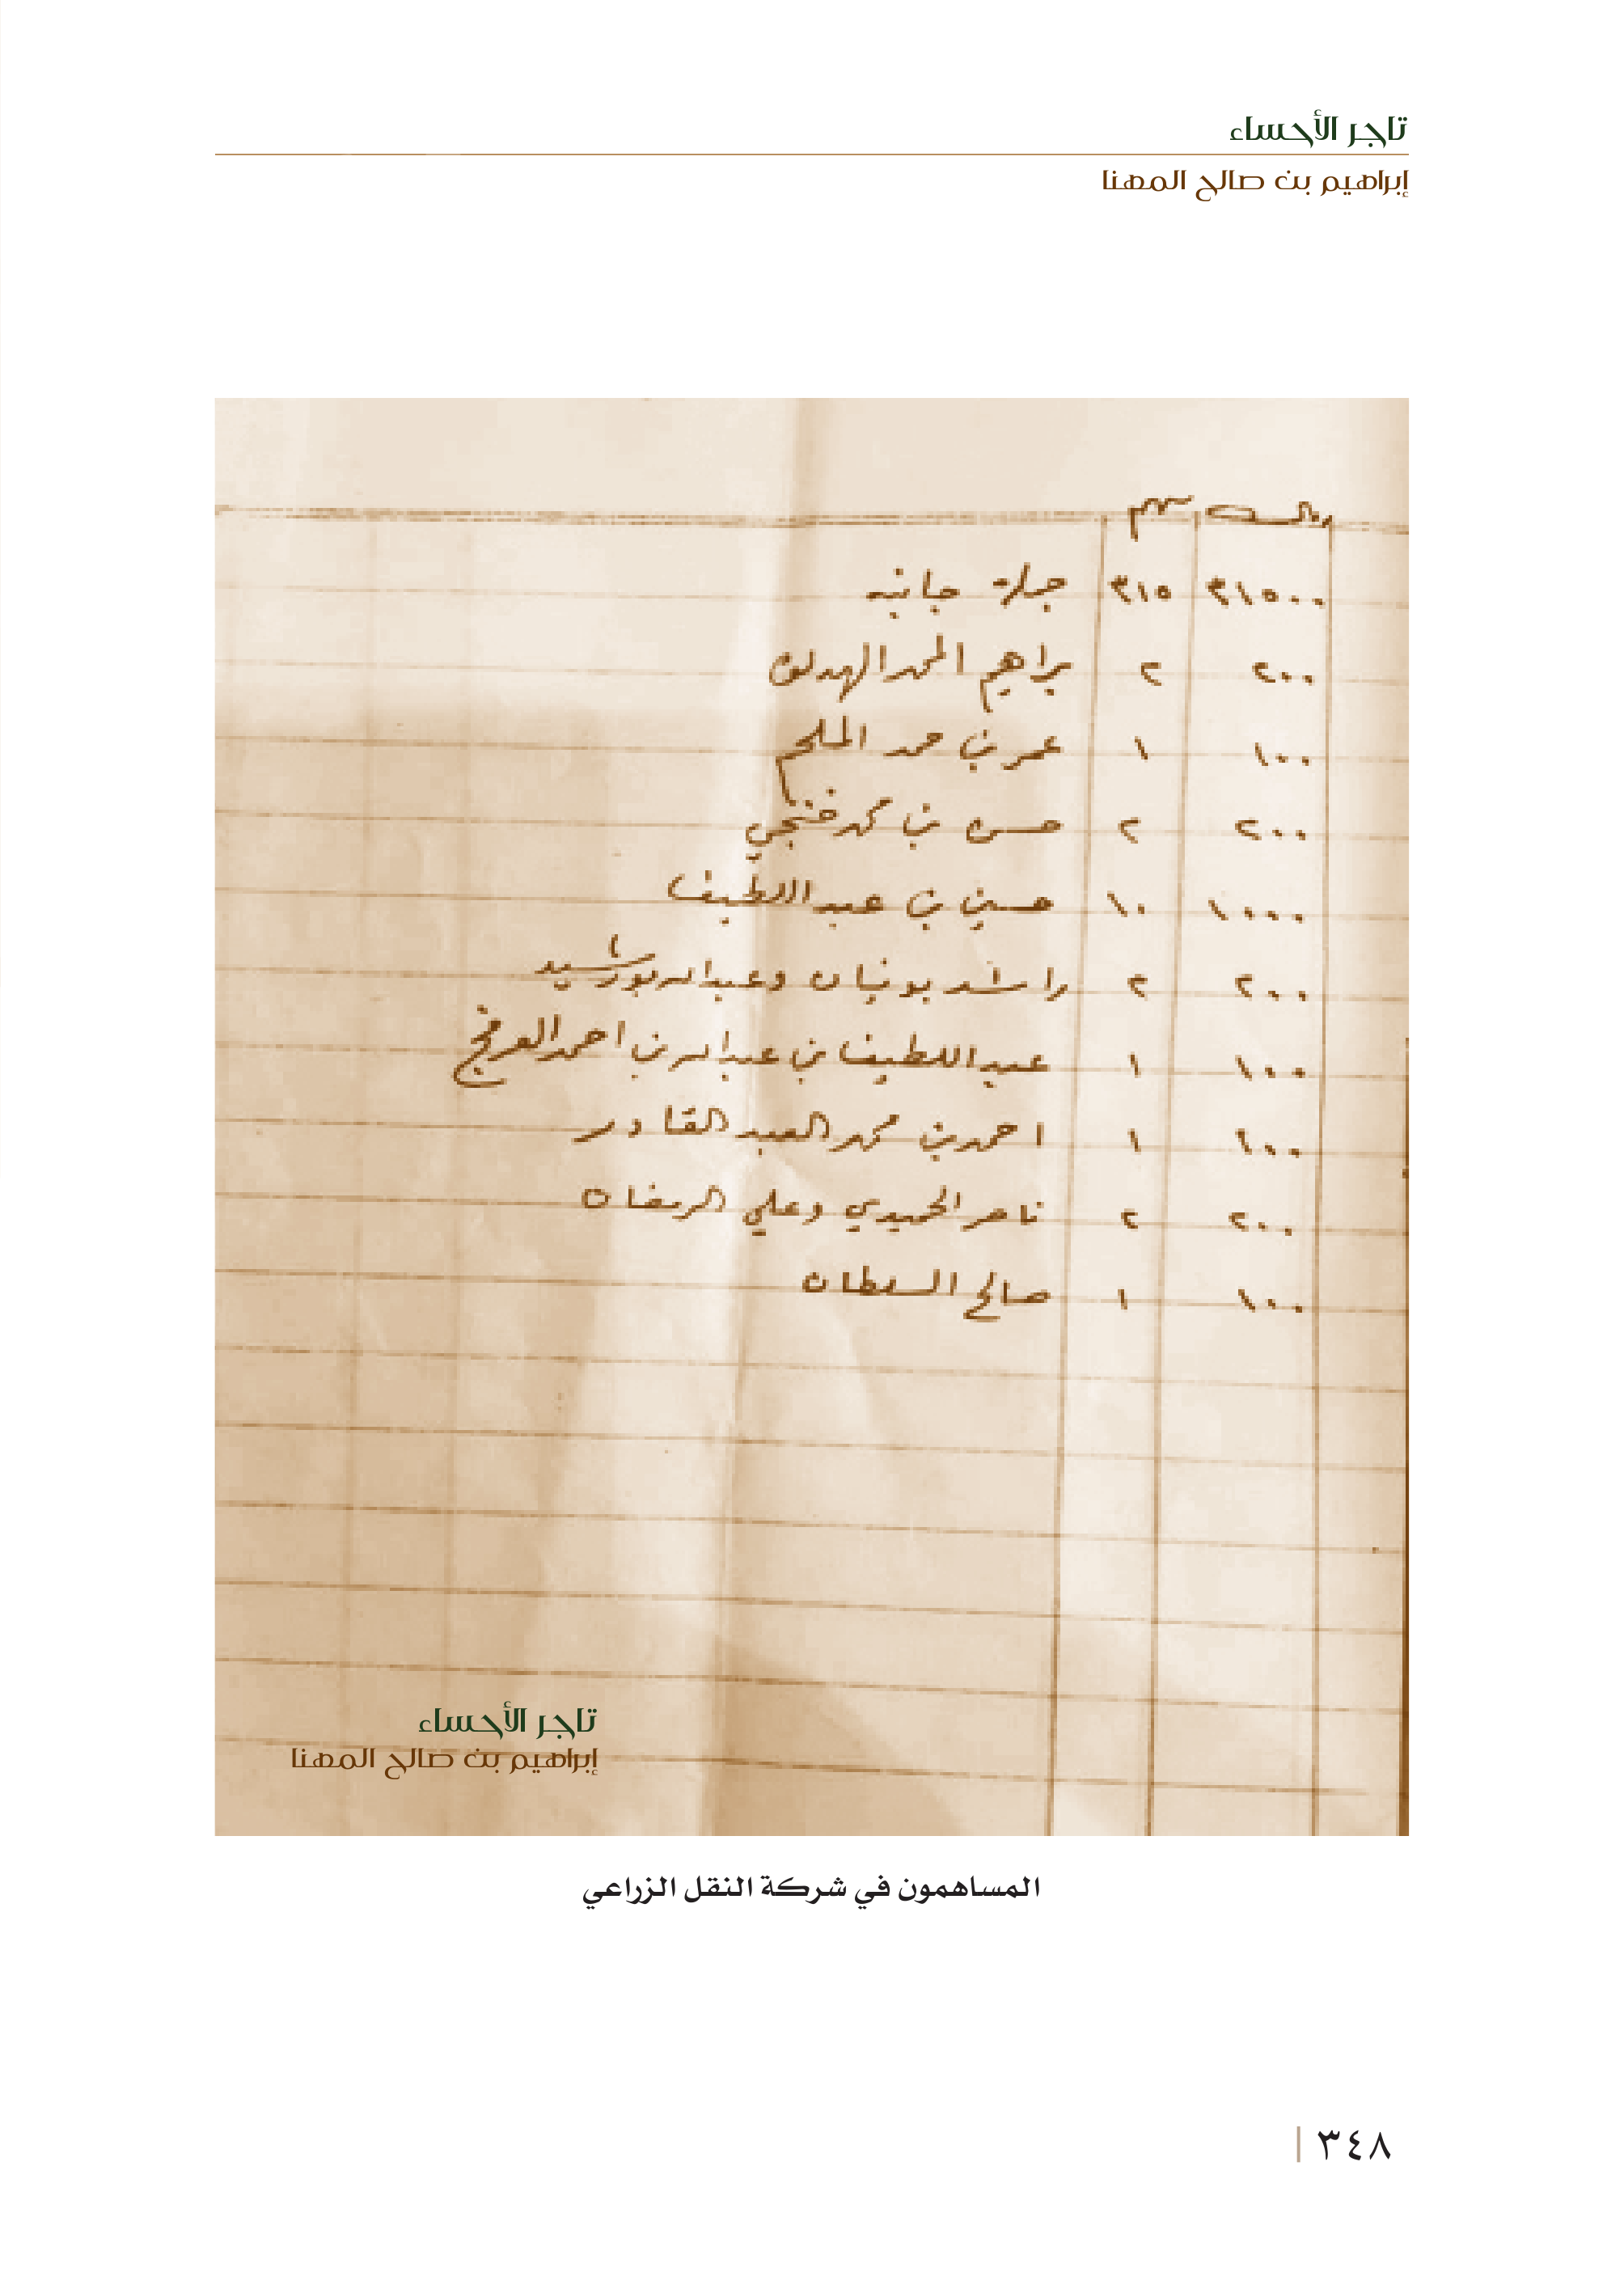 تاجر الأحساء
إبراهيم بن صالح المهنا
ريال سهم
٣١٥٠٠ ٣١٥ جملة جانبه
٢٠٠ ٢ براهيم المحمد الهدلق
١٠٠ ١ عمر بن حمد الملحم
٢٠٠ ٢ حسن بن محمد خنجي
١٠٠٠ ١٠ حسين بن عبد اللطيف
٢٠٠ ٢ راشد بونيان وعبدالله بورشيد
١٠٠ ١ عبد اللطيف بن عبدالله بن احمد العرفج
١٠٠ ١ احمد بن محمد العبد القادر
٢٠٠ ٢ ناصر الحميدي وعلي الرمضان
١٠٠ ١ صالح السلطان
تاجر الأحساء
إبراهيم بن صالح المهنا
المساهمون في شركة النقل الزراعي
٣٤٨